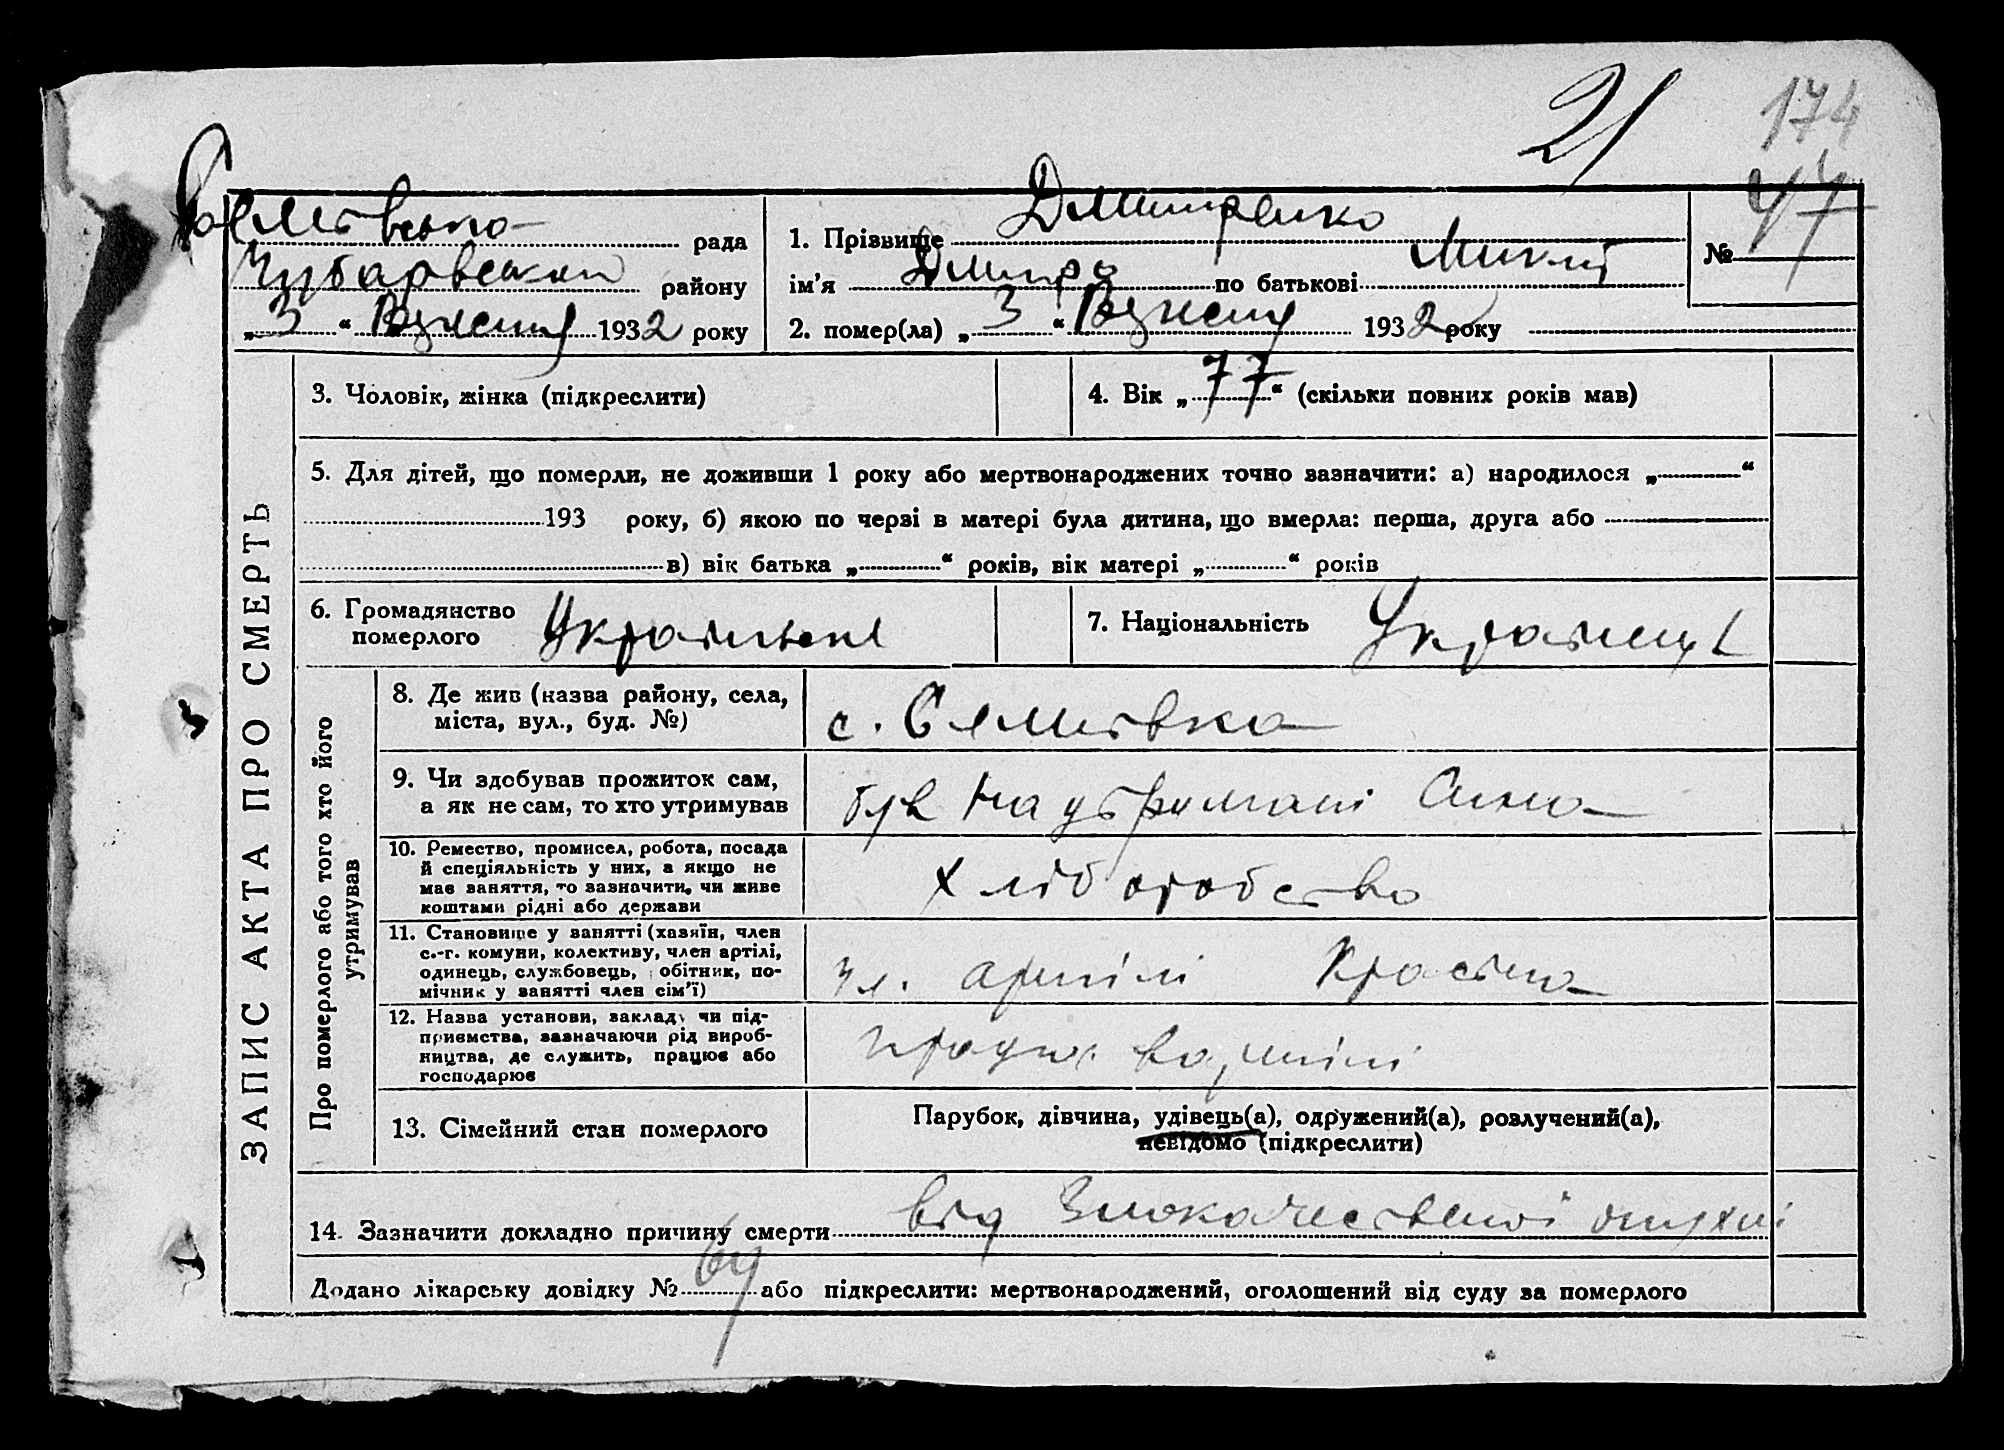 21 174
Семівська рада
Чубарівський району
„ 3 “ Вересня 1932 року
1. Прізвище Дмитренко
ім'я Дмитро по батькові
№ 47
2. помер(ла) „ 3 “ Вересня 1932 року
ЗАПИС АКТА ПРО СМЕРТЬ
3. Чоловік, жінка (підкреслити)
4. Вік „ 77 “ (скільки повних років мав)
5. Для дітей, що померли, не доживши 1 року або мертвонароджених точно зазначити: а) народилося „ “
193 року, б) якою по черзі в матері була дитина, що вмерла: перша, друга або
в) вік батька „ “ років, вік матері „ “ років
6. Громадянство
померлого Українське
7. Національність Українець
Про померлого або того хто його
утримував
8. Де жив (назва району, села,
міста, вул., буд. №)
с. Семівка
9. Чи здобував прожиток сам,
а як не сам, то хто утримував
був на утримані Сина
10. Ремество, промисел, робота, посада
й спеціяльність у них, а якщо не
має заняття, то зазначити, чи живе
коштами рідні або держави
хліборобство
11. Становище у занятті (хазяїн, член
с.-г. комуни, колективу, член артілі,
одинець, службовець, робітник, по-
мічник у занятті член сім'ї)
чл. артілі
12. Назва установи, закладу чи під-
приємства, зазначаючи рід вироб-
ництва, де служить, працює або
господарює
в артілі
13. Сімейний стан померлого
Парубок, дівчина, удівець(а), одружений(а), розлучений(а),
невідомо (підкреслити)
14. Зазначити докладно причину смерти від Злокачественої опухлі
Додано лікарську довідку № 64 або підкреслити: мертвонароджений, оголошений від суду за померлого